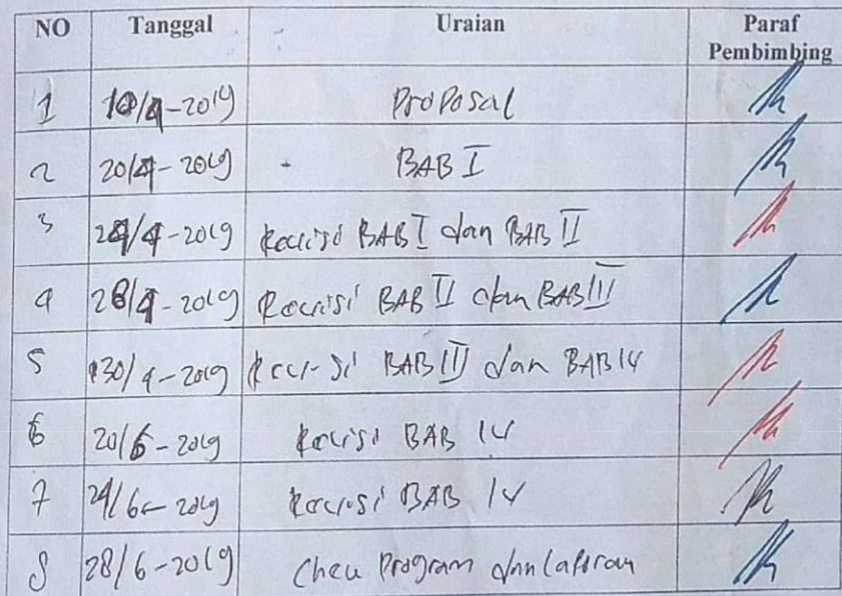 NO Tanggal Uraian Paraf Pembimbing
1 10/4-2019 Proposal
2 20/4-2019 BAB I
3 24/4-2019 Revisi BAB I dan BAB II
4 28/4-2019 Revisi BAB II dan BAB III
5 30/4-2019 Revisi BAB III dan BAB IV
6 20/6-2019 Revisi BAB IV
7 24/6-2019 Revisi BAB IV
8 28/6-2019 Program dan Laporan